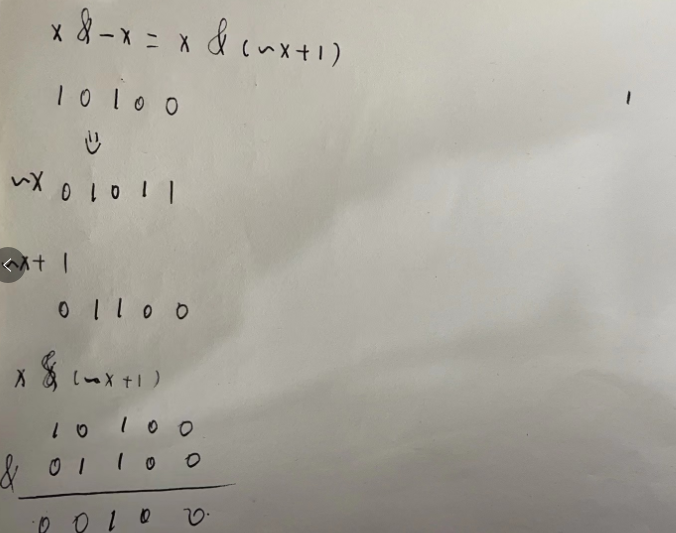 x & -x = x & (~x+1)
1 0 1 0 0
~x 0 1 0 1 1
~x + 1
0 1 1 0 0
x & (~x+1)
1 0 1 0 0
& 0 1 1 0 0
0 0 1 0 0